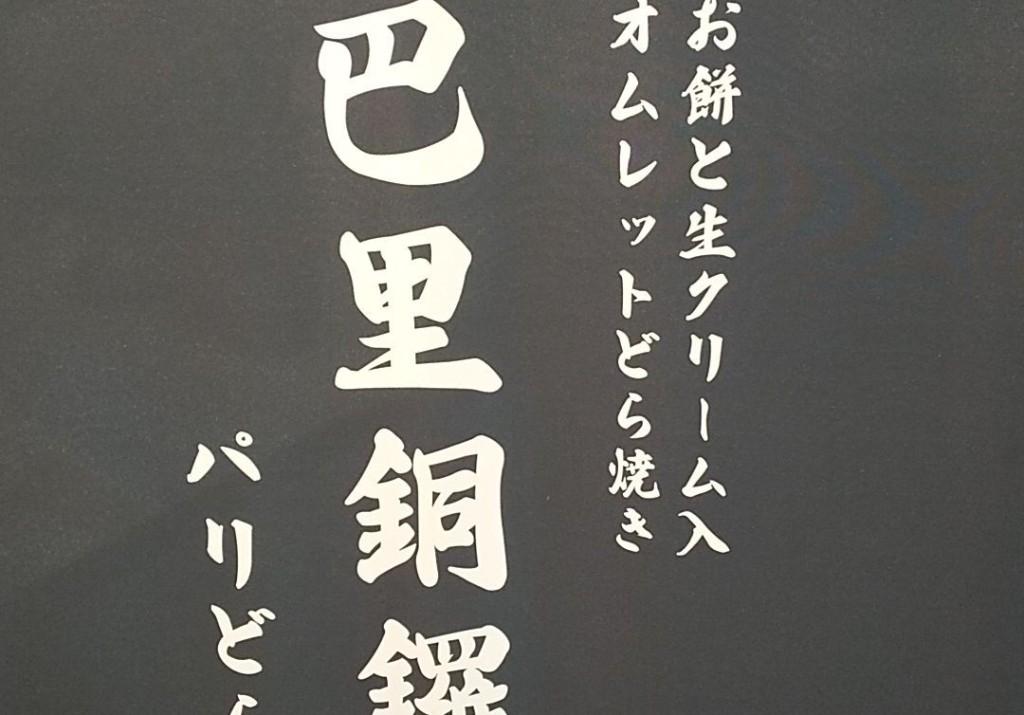 お餅と生クリーム入
オムレットどら焼き
巴里銅鑼
パリどら